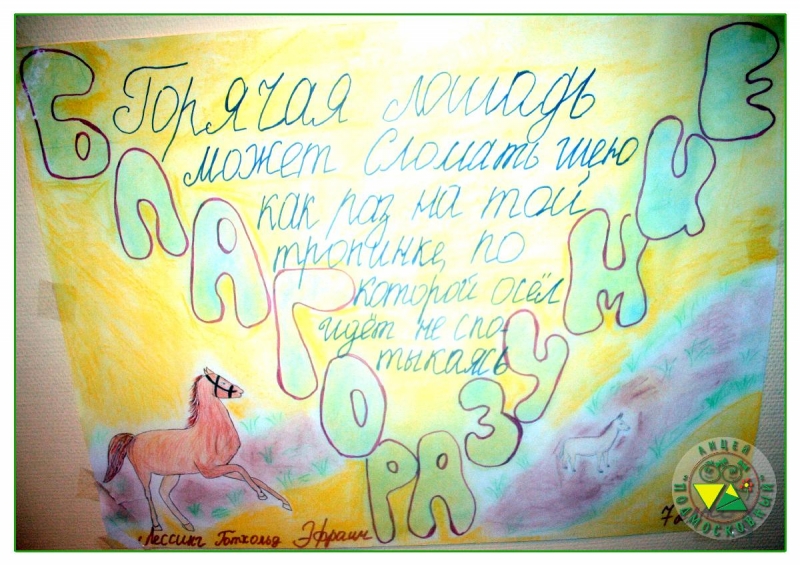 БЛАГОРАЗУМИЕ
Горячая лошадь
может сломать шею
как раз на той
тропинке, по
которой осёл
идёт не спо-
тыкаясь
Лессинг Готхольд Эфраим
ЛИЦЕЙ
"ПОДМОСКОВНЫЙ"